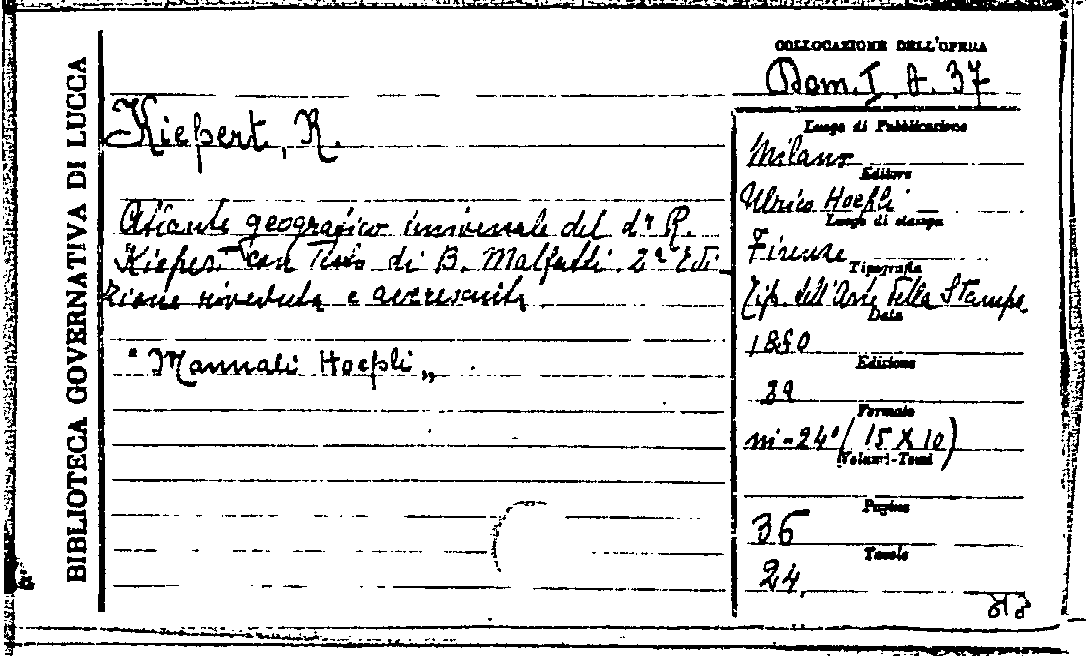 BIBLIOTECA GOVERNATIVA DI LUCCA
COLLOCAZIONE DELL'OPERA
Dom. I. A. 37
Kiepert, R.
Atlante geografico universale del dr R.
Kiepert con Testo di B. Malfatti. 2ª Edi-
zione riveduta e accresciuta
"Manuali Hoepli„
Luogo di Pubblicazione
Milano
Editore
Ulrico Hoepli
Luogo di stampa
Firenze
Tipografia
Tip. dell'Arte della Stampa
Data
Edizione
Formato
in-24° (15 X 10)
Volumi-Tomi
Pagine
36
Tavole
24.